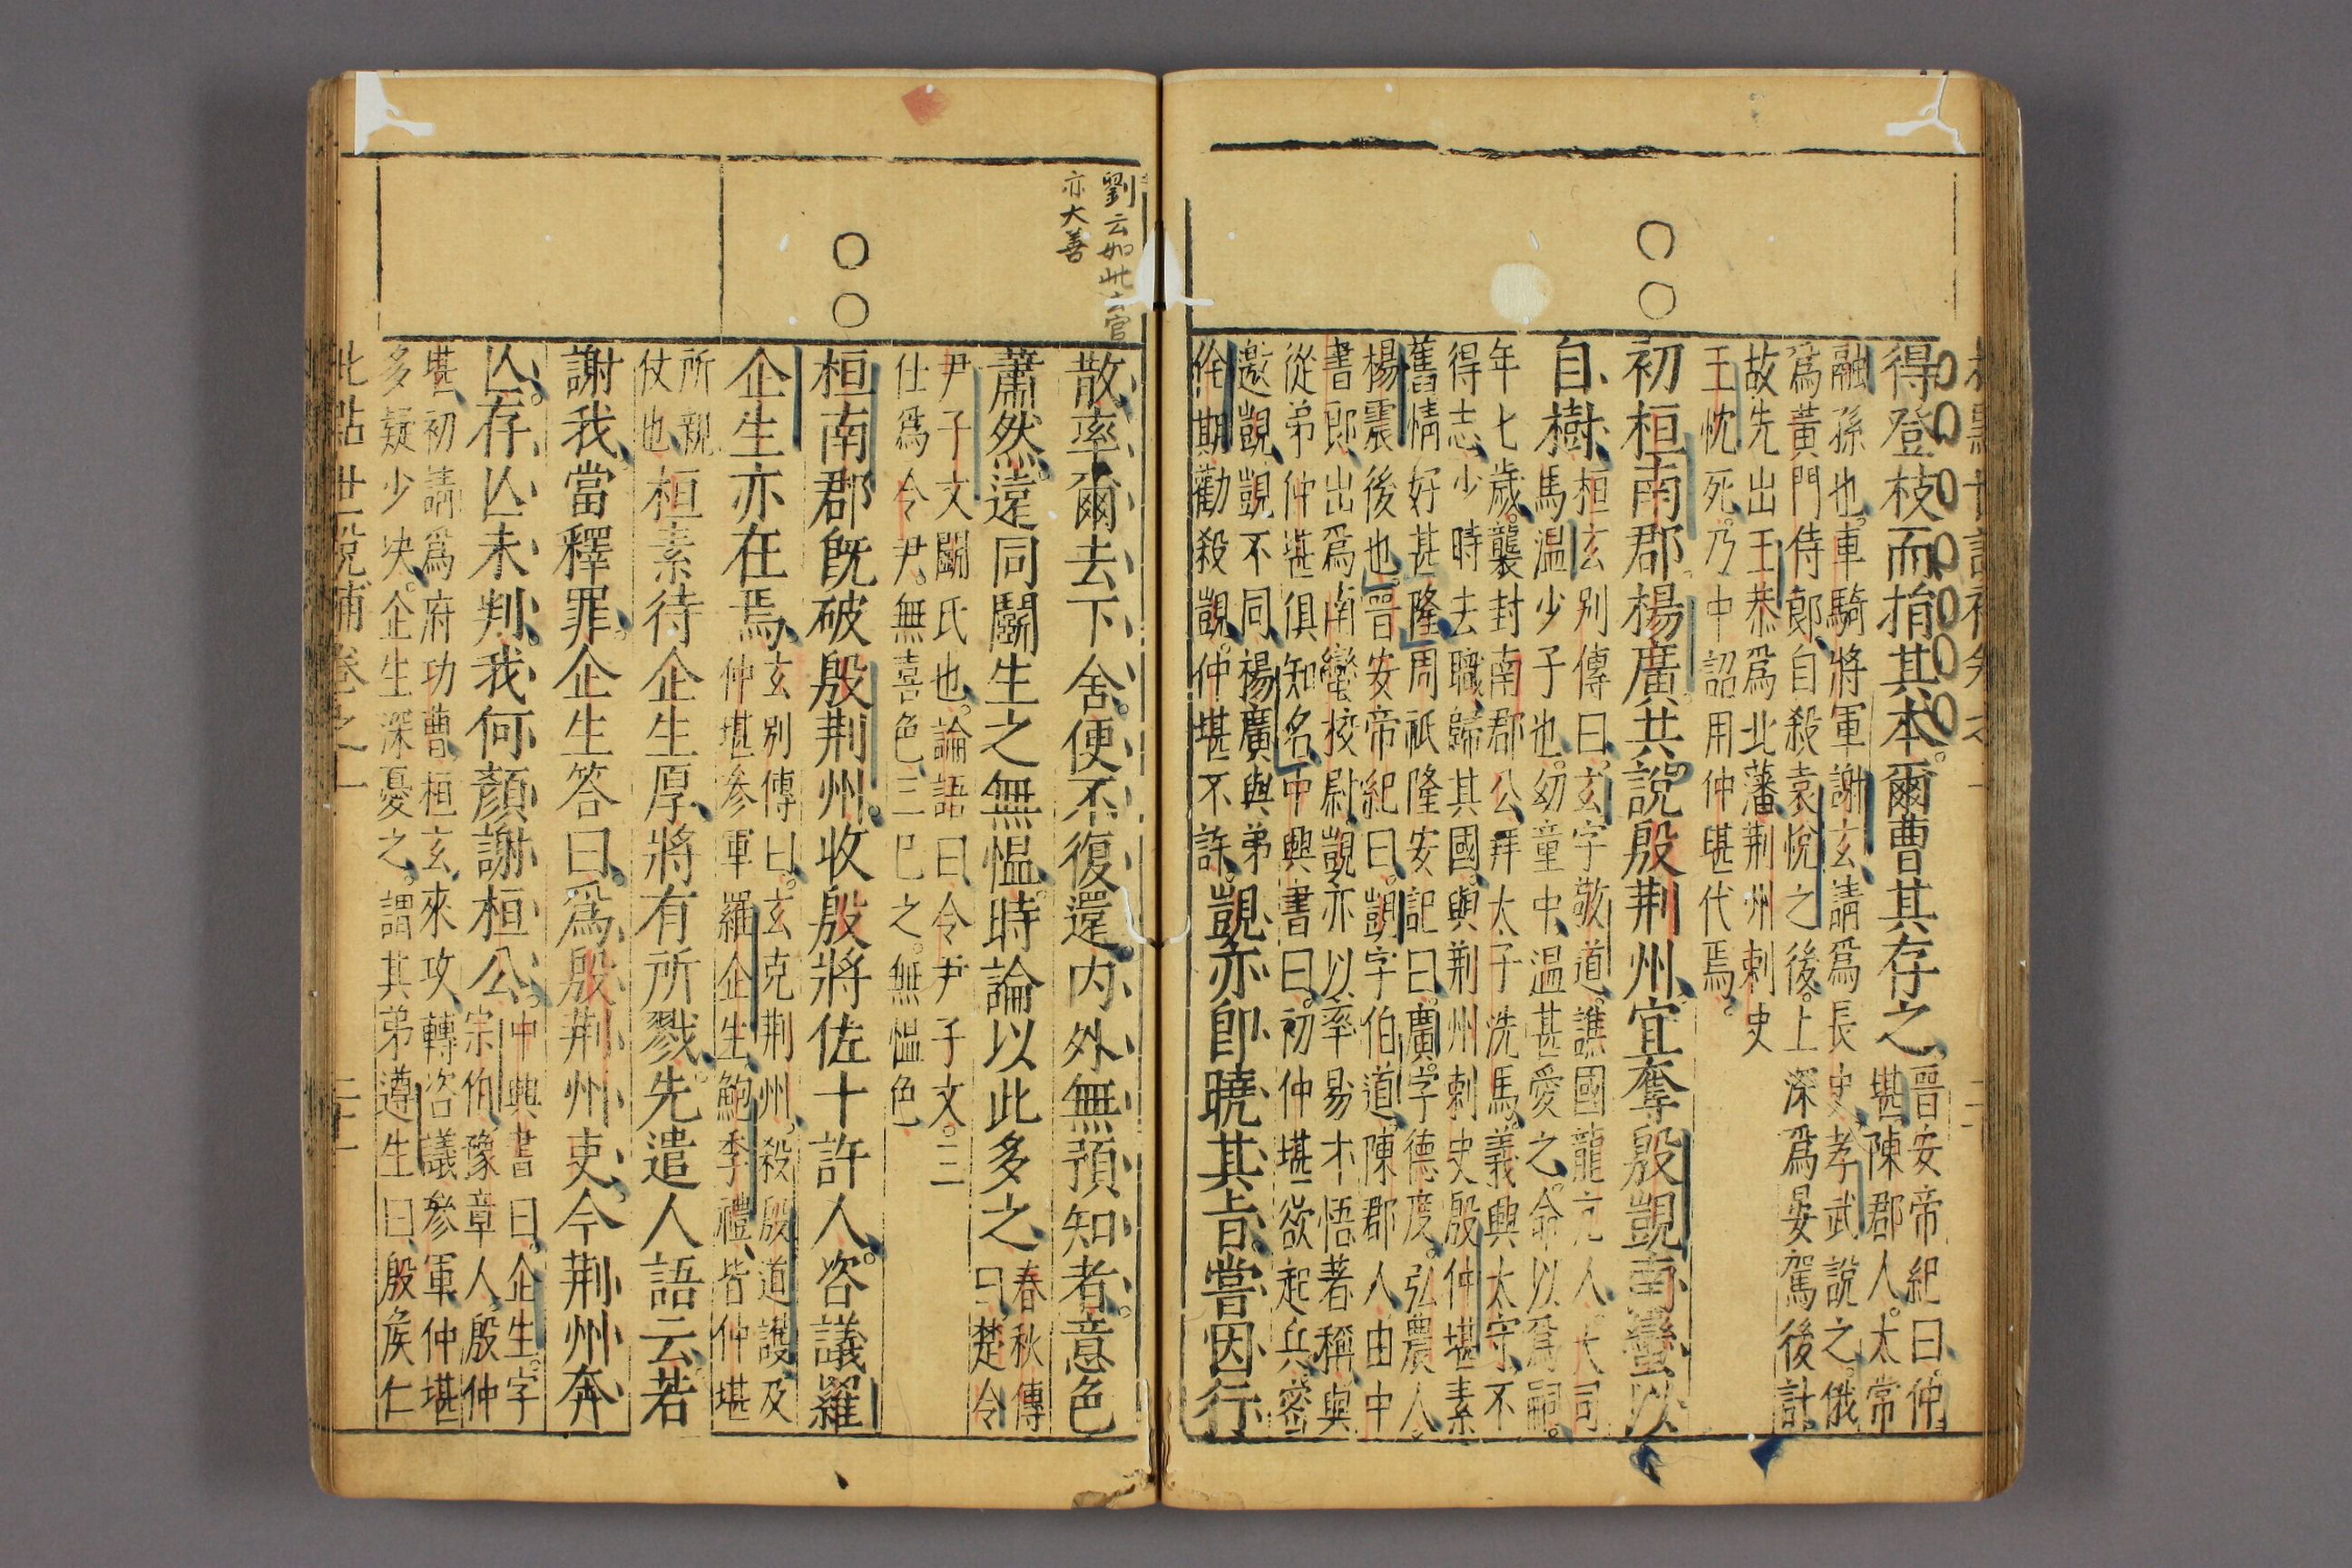 得登枝而捐其本爾曹其存之晉安帝紀曰仲
堪陳郡人太常
融孫也車騎將軍謝玄請爲長史孝武說之俄
爲黃門侍郎自殺袁悅之後上深爲晏駕後計
故先出王恭爲北藩荆州刺史
王忱死乃中詔用仲堪代焉
初桓南郡楊廣共說殷荆州宜奪殷覬南蠻以
自樹桓玄別傳曰玄字敬道譙國龍亢人大司
馬温少子也幼童中温甚愛之命以爲嗣
年七歲襲封南郡公拜太子洗馬義興太守不
得志少時去職歸其國與荆州刺史殷仲堪素
舊情好甚隆周祇隆安記曰廣字德度弘農人
楊震後也晉安帝紀曰覬字伯道陳郡人由中
書郎出爲南蠻校尉覬亦以率易才悟著稱與
從弟仲堪俱知名中興書曰初仲堪欲起兵密
邀覬覬不同楊廣與弟
佺期勸殺覬仲堪不許覬亦即曉其旨嘗因行
劉云如此去官
亦大善
散率爾去下舍便不復還内外無預知者意色
蕭然遠同鬭生之無愠時論以此多之春秋傳
曰楚令
尹子文鬭氏也論語曰令尹子文三
仕爲令尹無喜色三已之無愠色
桓南郡旣破殷荆州收殷將佐十許人咨議羅
企生亦在焉玄別傳曰玄克荆州殺殷道護及
仲堪參軍羅企生鮑季禮皆仲堪
所親
仗也桓素待企生厚將有所戮先遣人語云若
謝我當釋罪企生答曰爲殷荆州吏今荆州奔
亾存亾未判我何顔謝桓公中興書曰企生字
宗伯豫章人殷仲
堪初請爲府功曹桓玄來攻轉咨議參軍仲堪
多疑少决企生深憂之謂其弟遵生曰殷侯仁
批點世說補卷之一